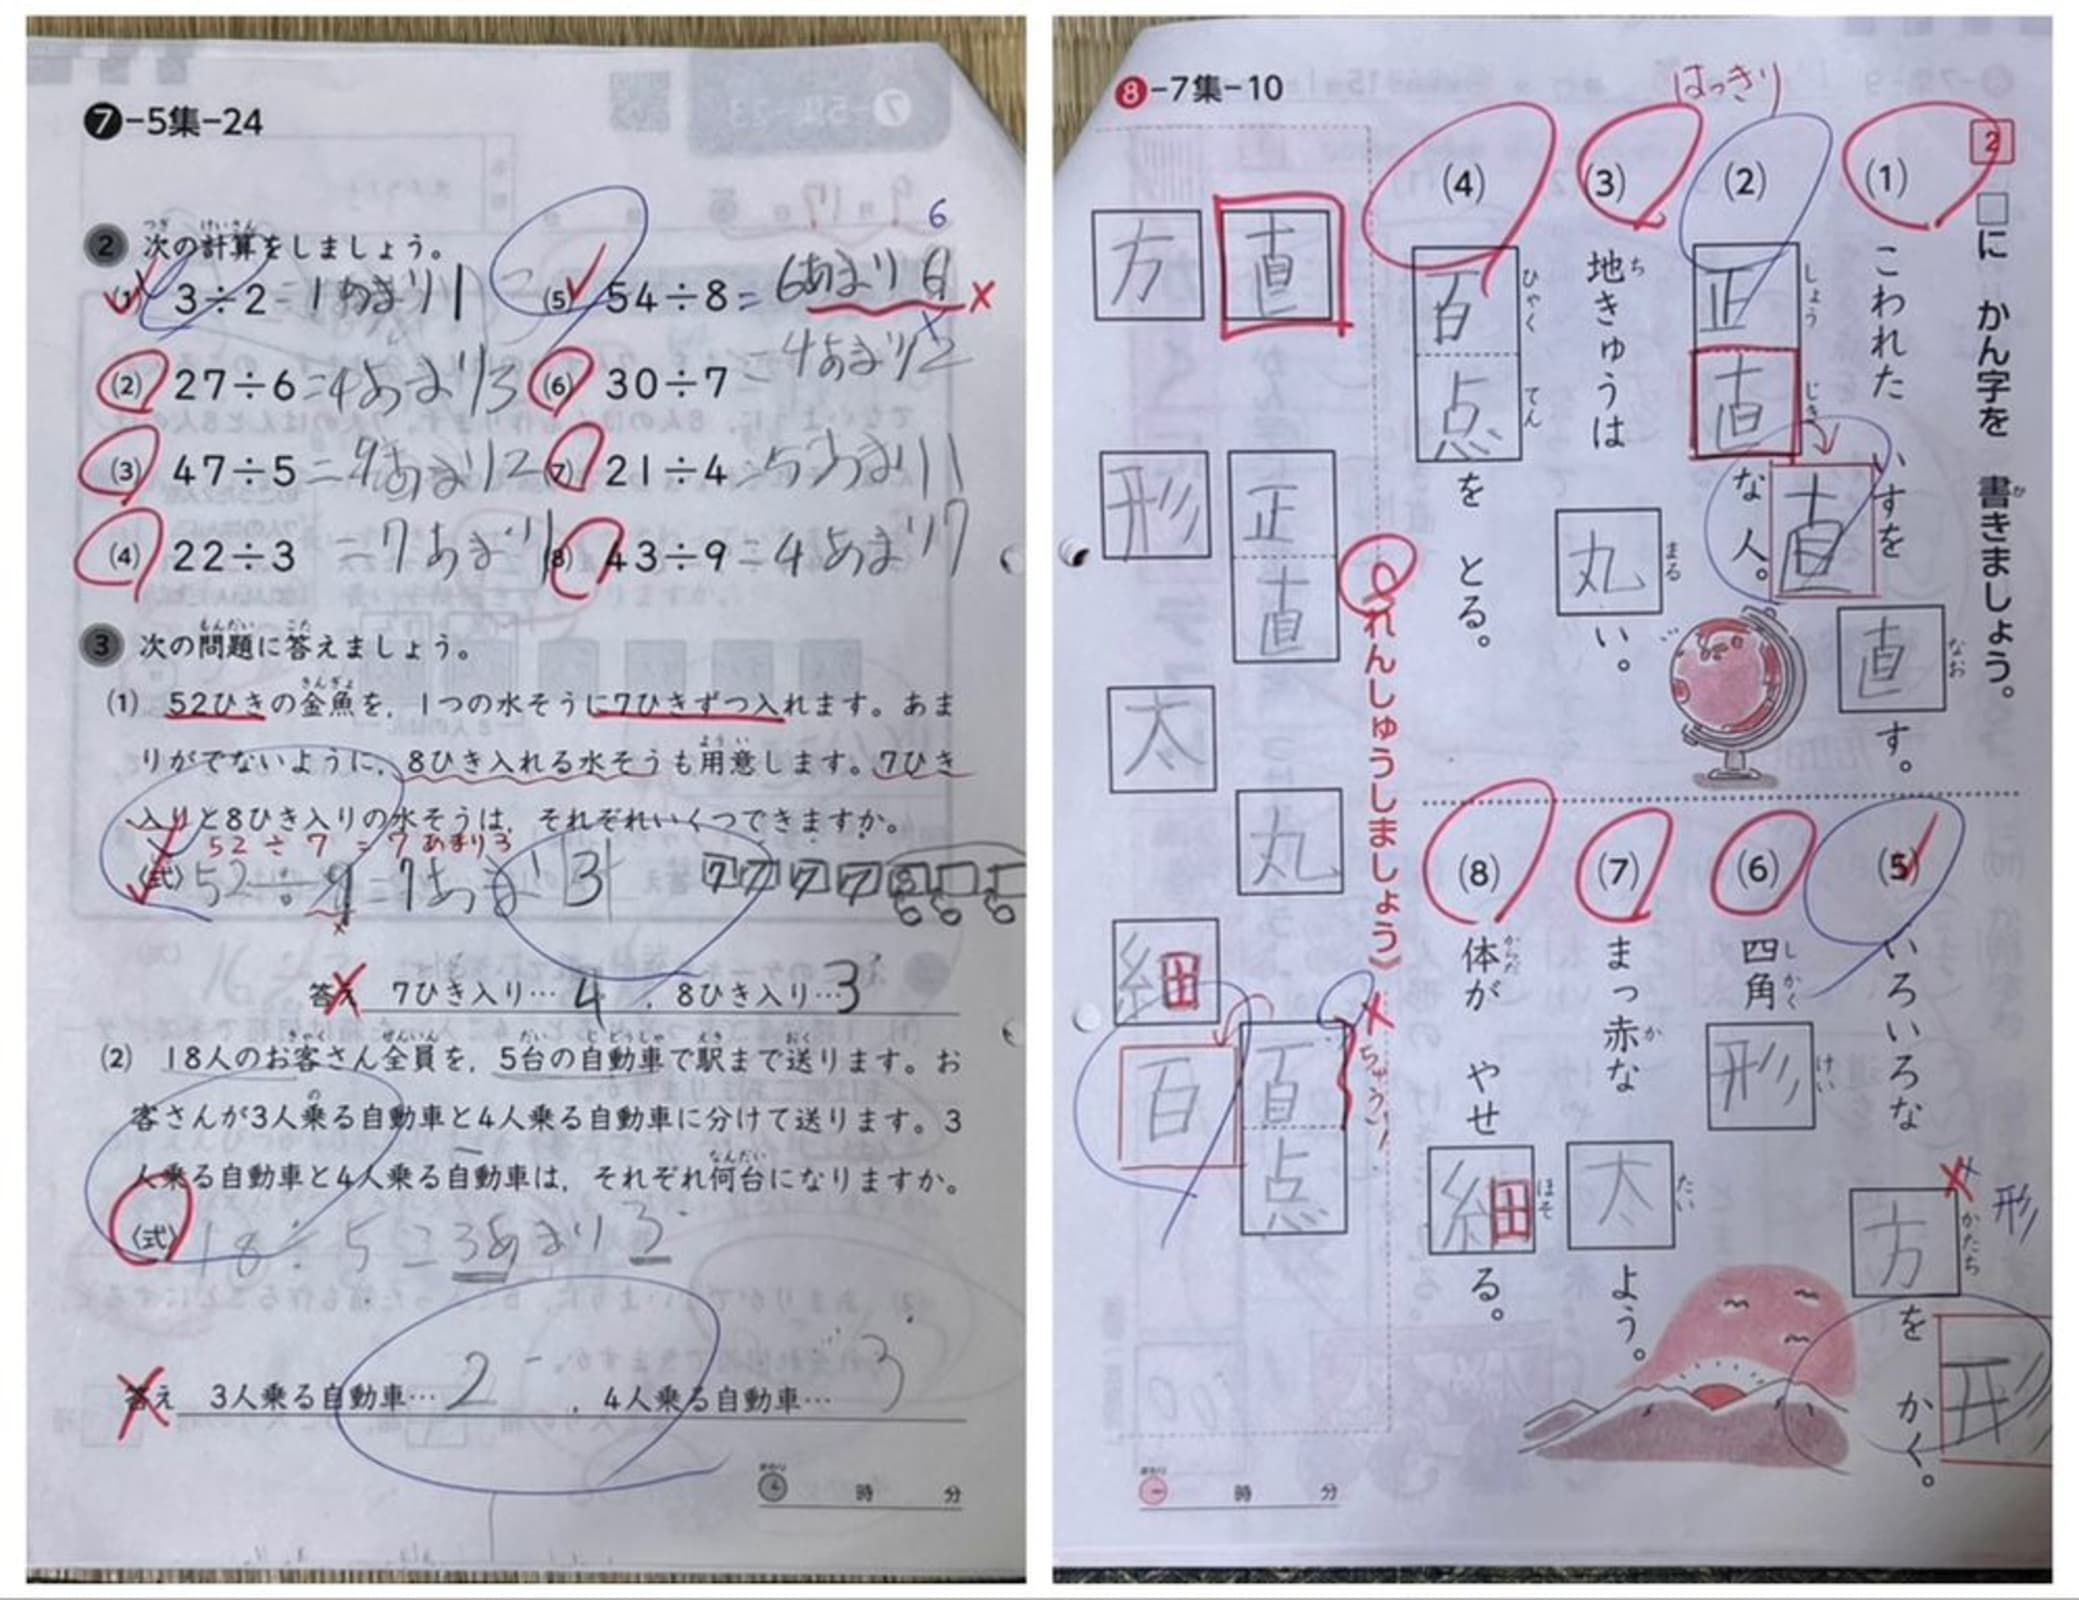 7-5集-24
2 次の計算をしましょう。
(1) 3÷2=1あまり1
(2) 27÷6=4あまり3
(3) 47÷5=9あまり2
(4) 22÷3=7あまり1
6
(5) 54÷8=6あまり6
(6) 30÷7=4あまり2
(7) 21÷4=5あまり1
(8) 43÷9=4あまり7
3 次の問題に答えましょう。
(1) 52ひきの金魚を，1つの水そうに7ひきずつ入れます。あま
りがでないように，8ひき入れる水そうも用意します。7ひき
入りと8ひき入りの水そうは，それぞれいくつできますか。
52÷7=7あまり3
(式) 52÷ =7あまり3
答え 7ひき入り…4，8ひき入り…3
(2) 18人のお客さん全員を，5台の自動車で駅まで送ります。お
客さんが3人乗る自動車と4人乗る自動車に分けて送ります。3
人乗る自動車と4人乗る自動車は，それぞれ何台になりますか。
(式) 18÷5=3あまり3
答え 3人乗る自動車…2，4人乗る自動車…3
時 分
8-7集-10
2 □に かん字を 書きましょう。
(1) こわれた いすを 直す。
はっきり
(2) 正直な 人。
直
(3) 地きゅうは 丸い。
(4) 百点を とる。
(5) いろいろな 方を かく。
形
形
(6) 四角形
(7) まっ赤な 太よう。
(8) 体が やせ細る。
れんしゅうしましょう》
直
正直
丸
百点
ちゅうい！
方
形
太
細
百
時 分